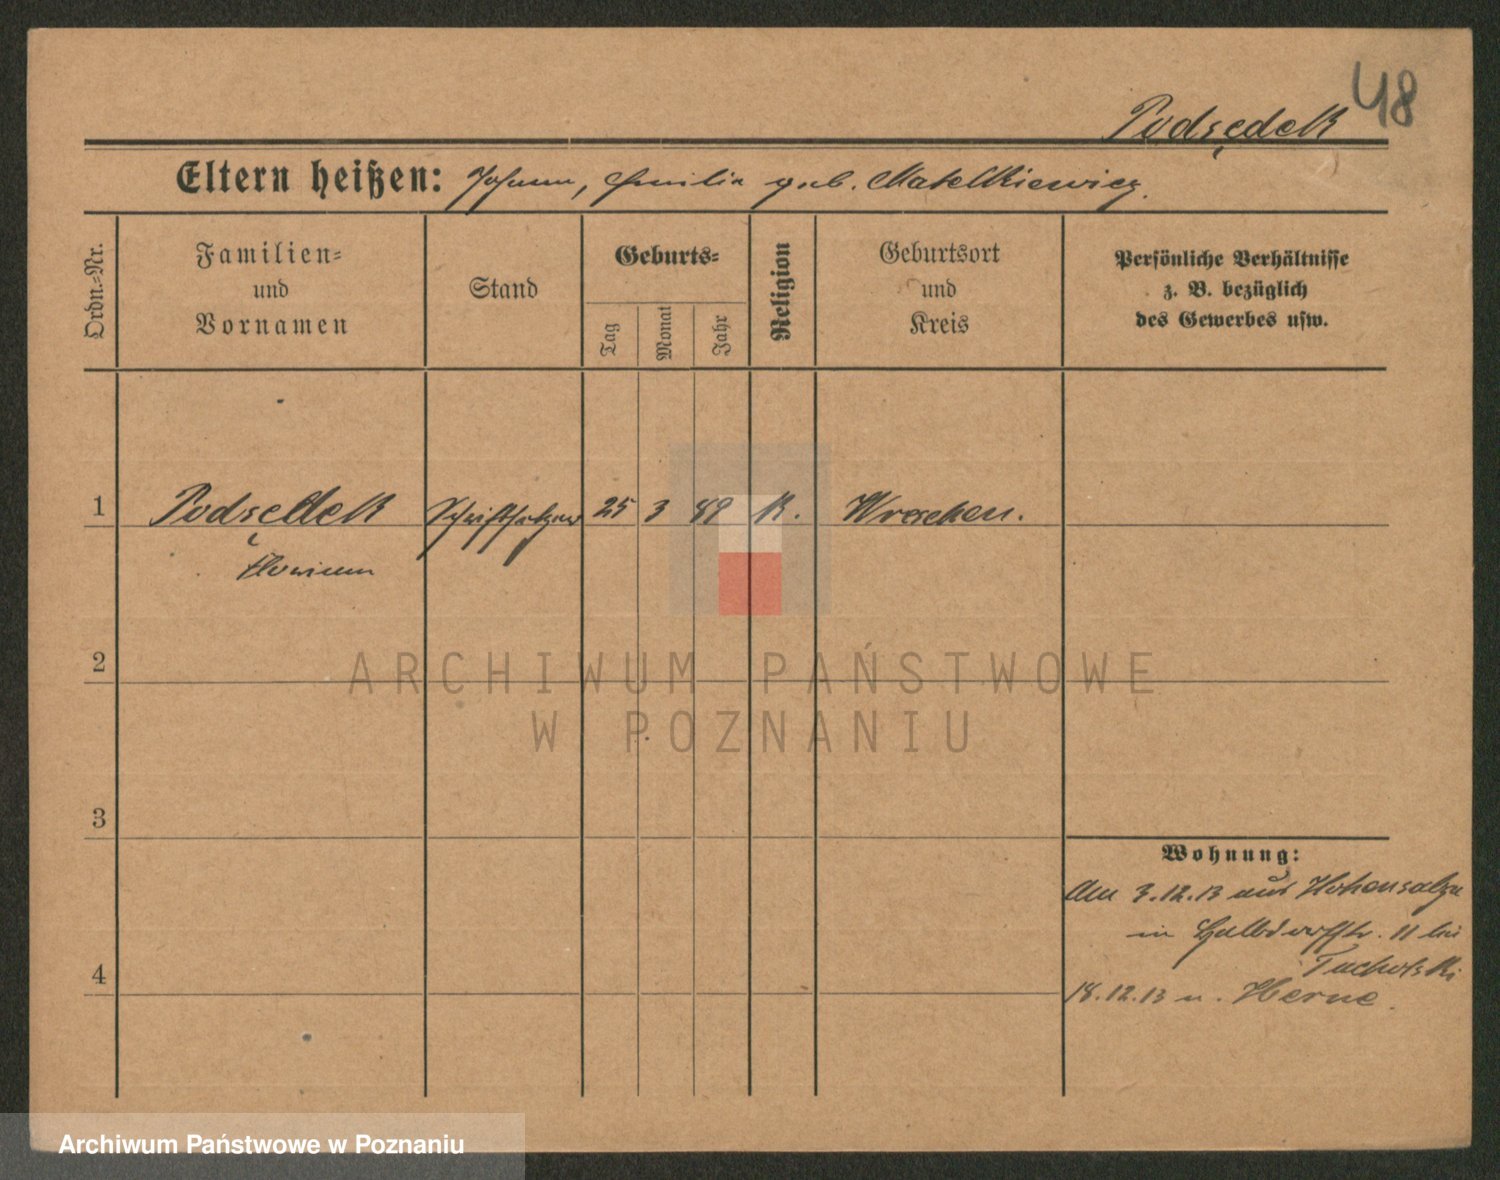 48
Podsędek
Eltern heißen: Johann, Emilie geb. Matelkiewicz.
Ordn.=Nr.
Familien=
und
Vornamen
Stand
Geburts=
Tag
Monat
Jahr
Religion
Geburtsort
und
Kreis
Persönliche Verhältnisse
z. B. bezüglich
des Gewerbes usw.
1 Podsędek Schriftsetzer 25 3 89 K. Wreschen.
Florian
2
ARCHIWUM PAŃSTWOWE
W POZNANIU
3
Wohnung:
Am 3.12.13 aus Hohensalza
in Halbdorfstr. 11 bei
Tucholski
4
18.12.13 n. Herne.
Archiwum Państwowe w Poznaniu